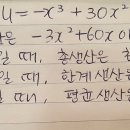 U = -x³ + 30x²
은 -3x² + 60x 이
일 때, 총생산은 총
일 때, 한계생산은
일 때, 평균생산은